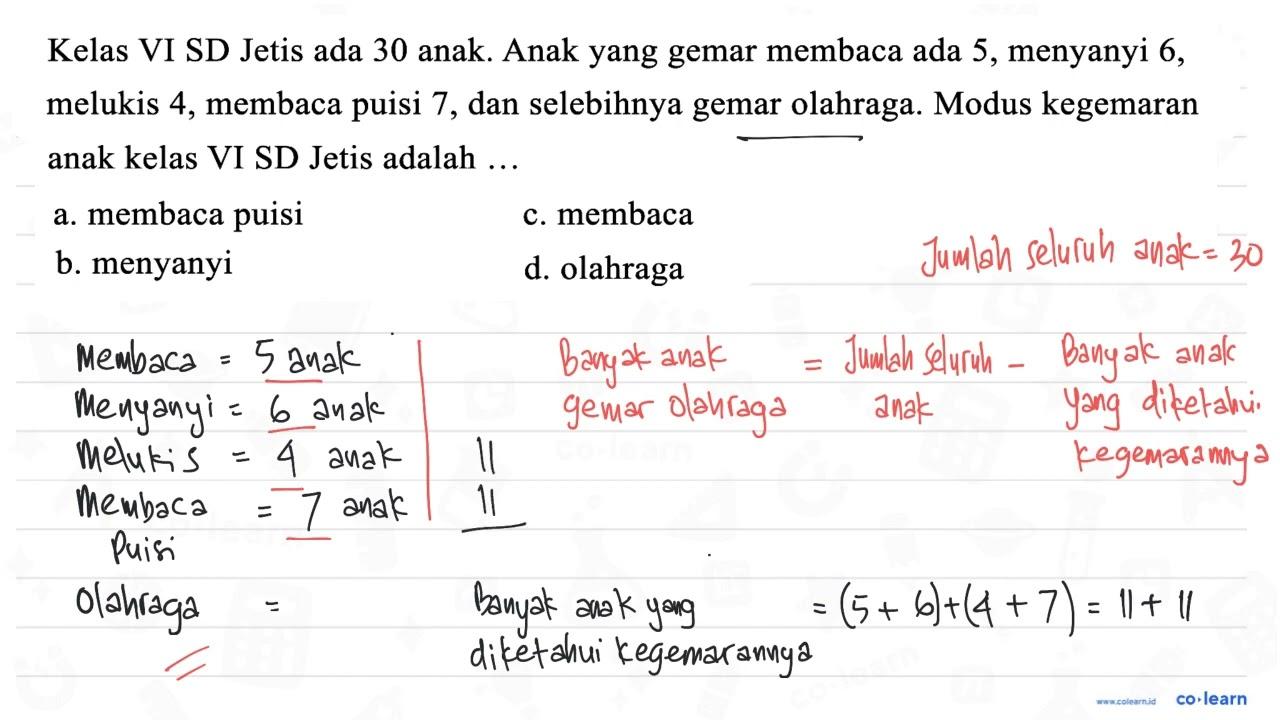 Kelas VI SD Jetis ada 30 anak. Anak yang gemar membaca ada 5, menyanyi 6,
melukis 4, membaca puisi 7, dan selebihnya gemar olahraga. Modus kegemaran
anak kelas VI SD Jetis adalah ...
a. membaca puisi
c. membaca
b. menyanyi
d. olahraga
Jumlah seluruh anak = 30
Membaca = 5 anak
Menyanyi = 6 anak
Melukis = 4 anak
Membaca = 7 anak
Puisi
11
11
Banyak anak = Jumlah seluruh - Banyak anak
gemar olahraga anak yang diketahui
kegemarannya
Olahraga =
Banyak anak yang = (5 + 6) + (4 + 7) = 11 + 11
diketahui kegemarannya
co-learn
www.colearn.id co·learn